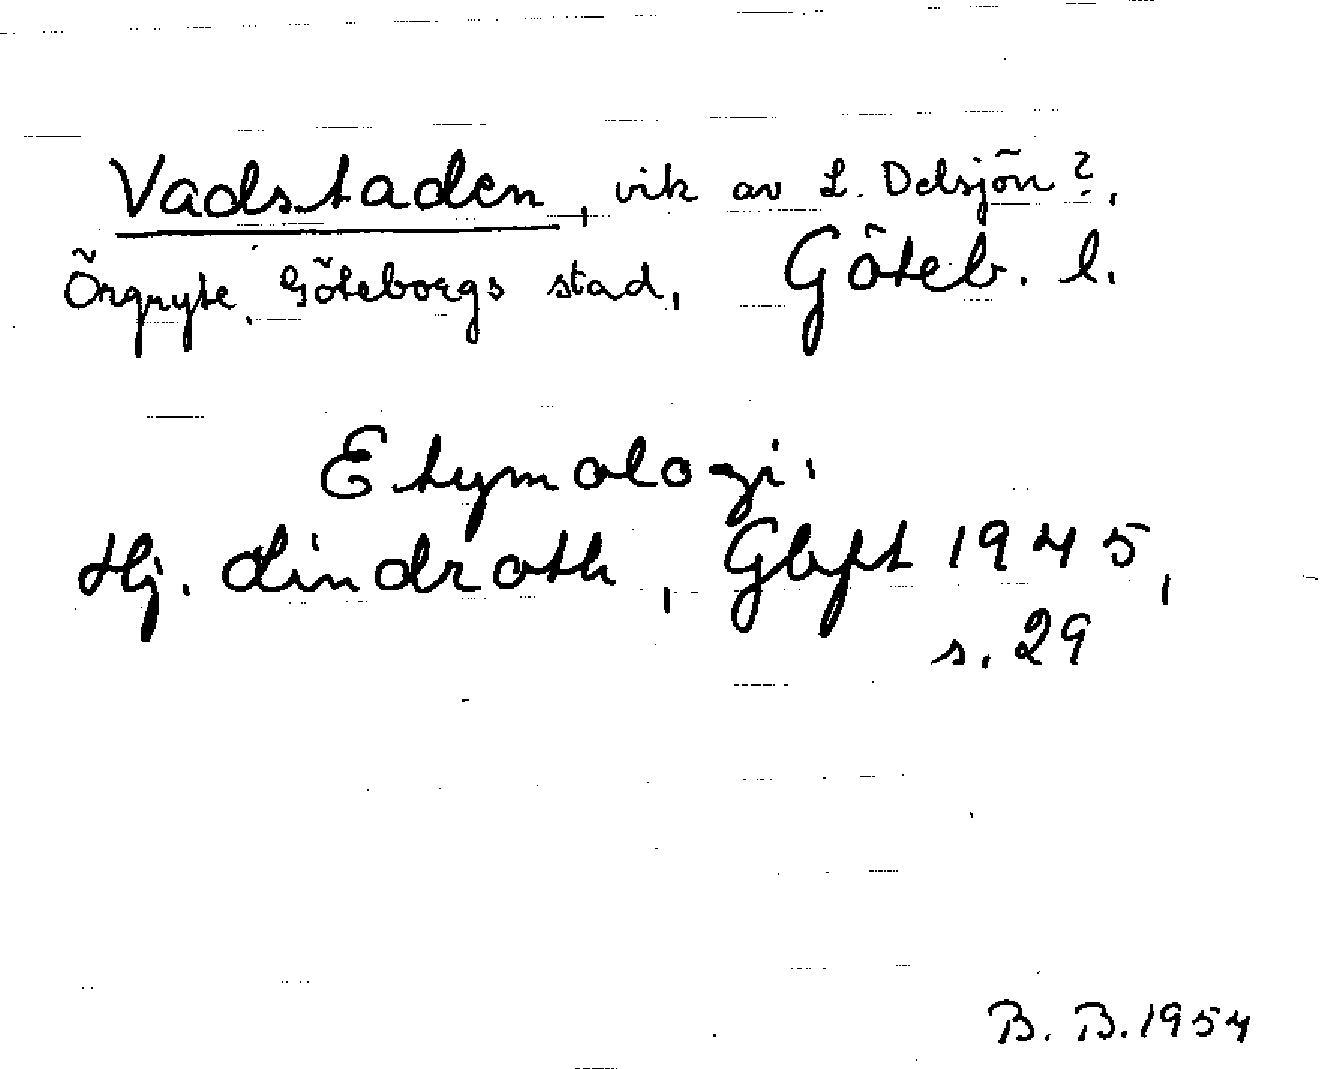 Vadstaden, vik av L. Delsjön?,
Örgryte, Göteborgs stad, Göteb. l.
Etymologi:
Hj. Lindroth, Gbgft 1945,
s. 29
B. B. 1954